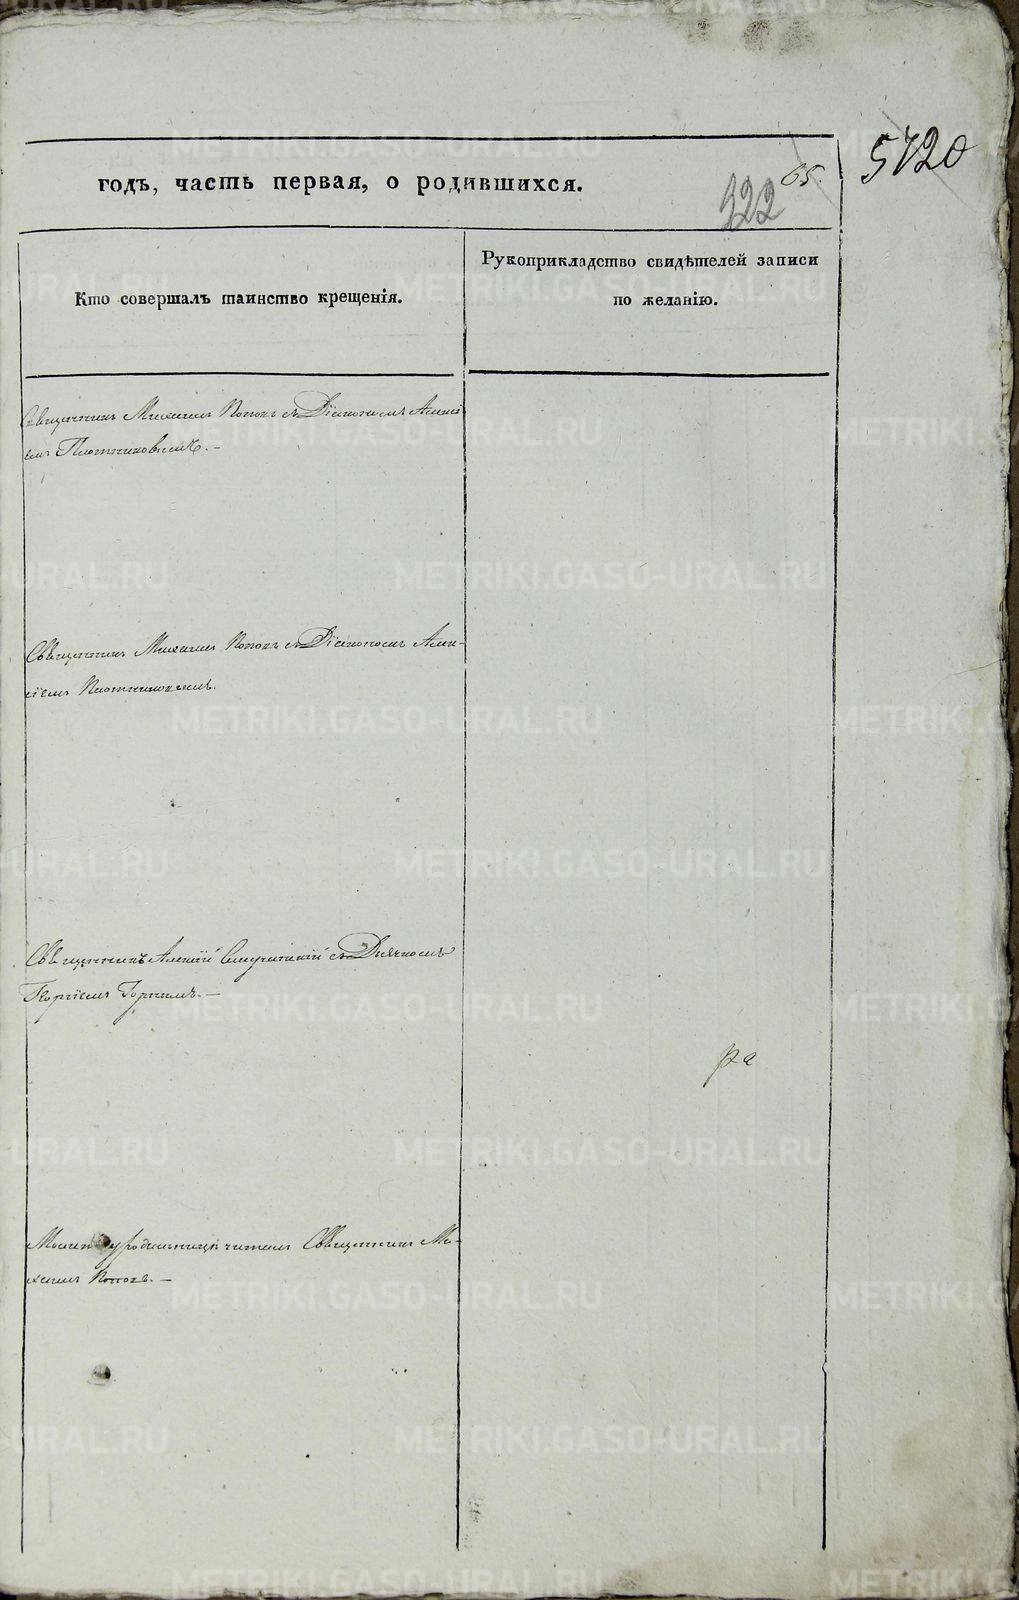 годъ, часть первая, о родившихся.
65.
322
5720
Кто совершалъ таинство крещенія.
Рукоприкладство свидѣтелей записи
по желанію.
Священникъ Михаилъ Поповъ съ Діакономъ Алексі
емъ Плотниковымъ. –
Священникъ Михаилъ Поповъ съ Діакономъ Алек-
сіемъ Плотниковымъ.
Священникъ Алексій съ Дьячкомъ
Георгіемъ –
ра
читалъ Священникъ Ми-
хаилъ Поповъ. –
METRIKI.GASO-URAL.RU